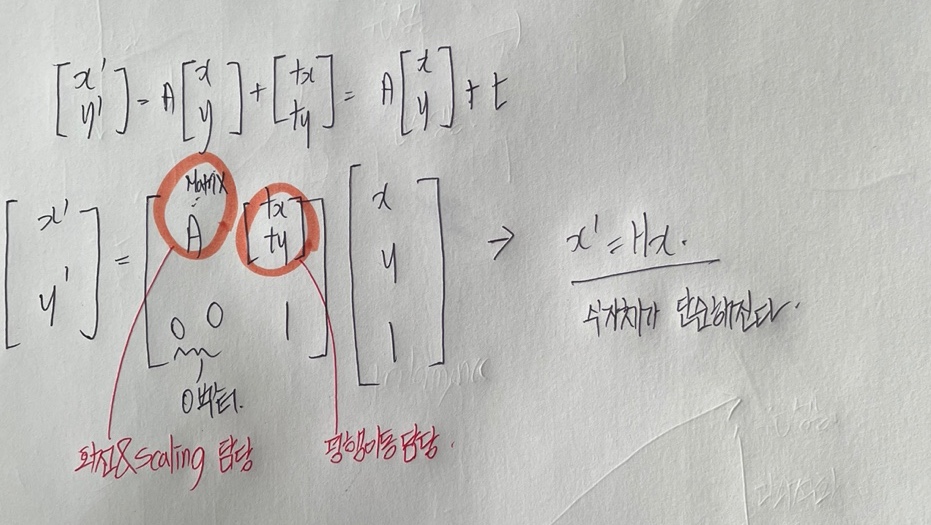 [x' y'] = A [x y] + [tx ty] = A [x y] + t
[x' y'] = [Matrix A [tx ty] 0 0 1] [x y 1] → x' = Hx.
식자체가 단순해진다.
0벡터.
회전&scaling 담당
평행이동담당.